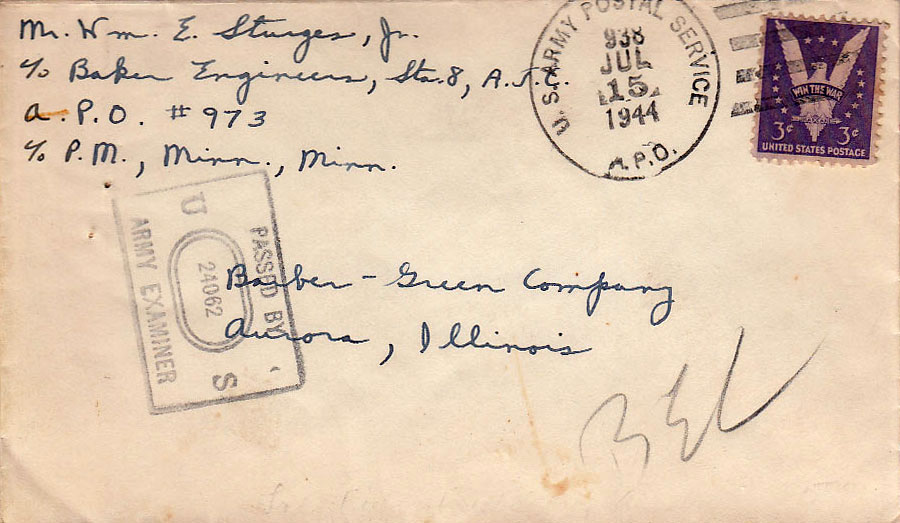 Mr. Wm. E. Sturges, Jr.
c/o Baker Engineers, Sta. 8, A.T.C.
A.P.O. #973
c/o P.M., Minn., Minn.
U.S. ARMY POSTAL SERVICE
938
JUL
15
1944
A.P.O.
WIN THE WAR
3¢ 3¢
UNITED STATES POSTAGE
PASSED BY
U 24062 S
ARMY EXAMINER
Barber-Green Company
Aurora, Illinois